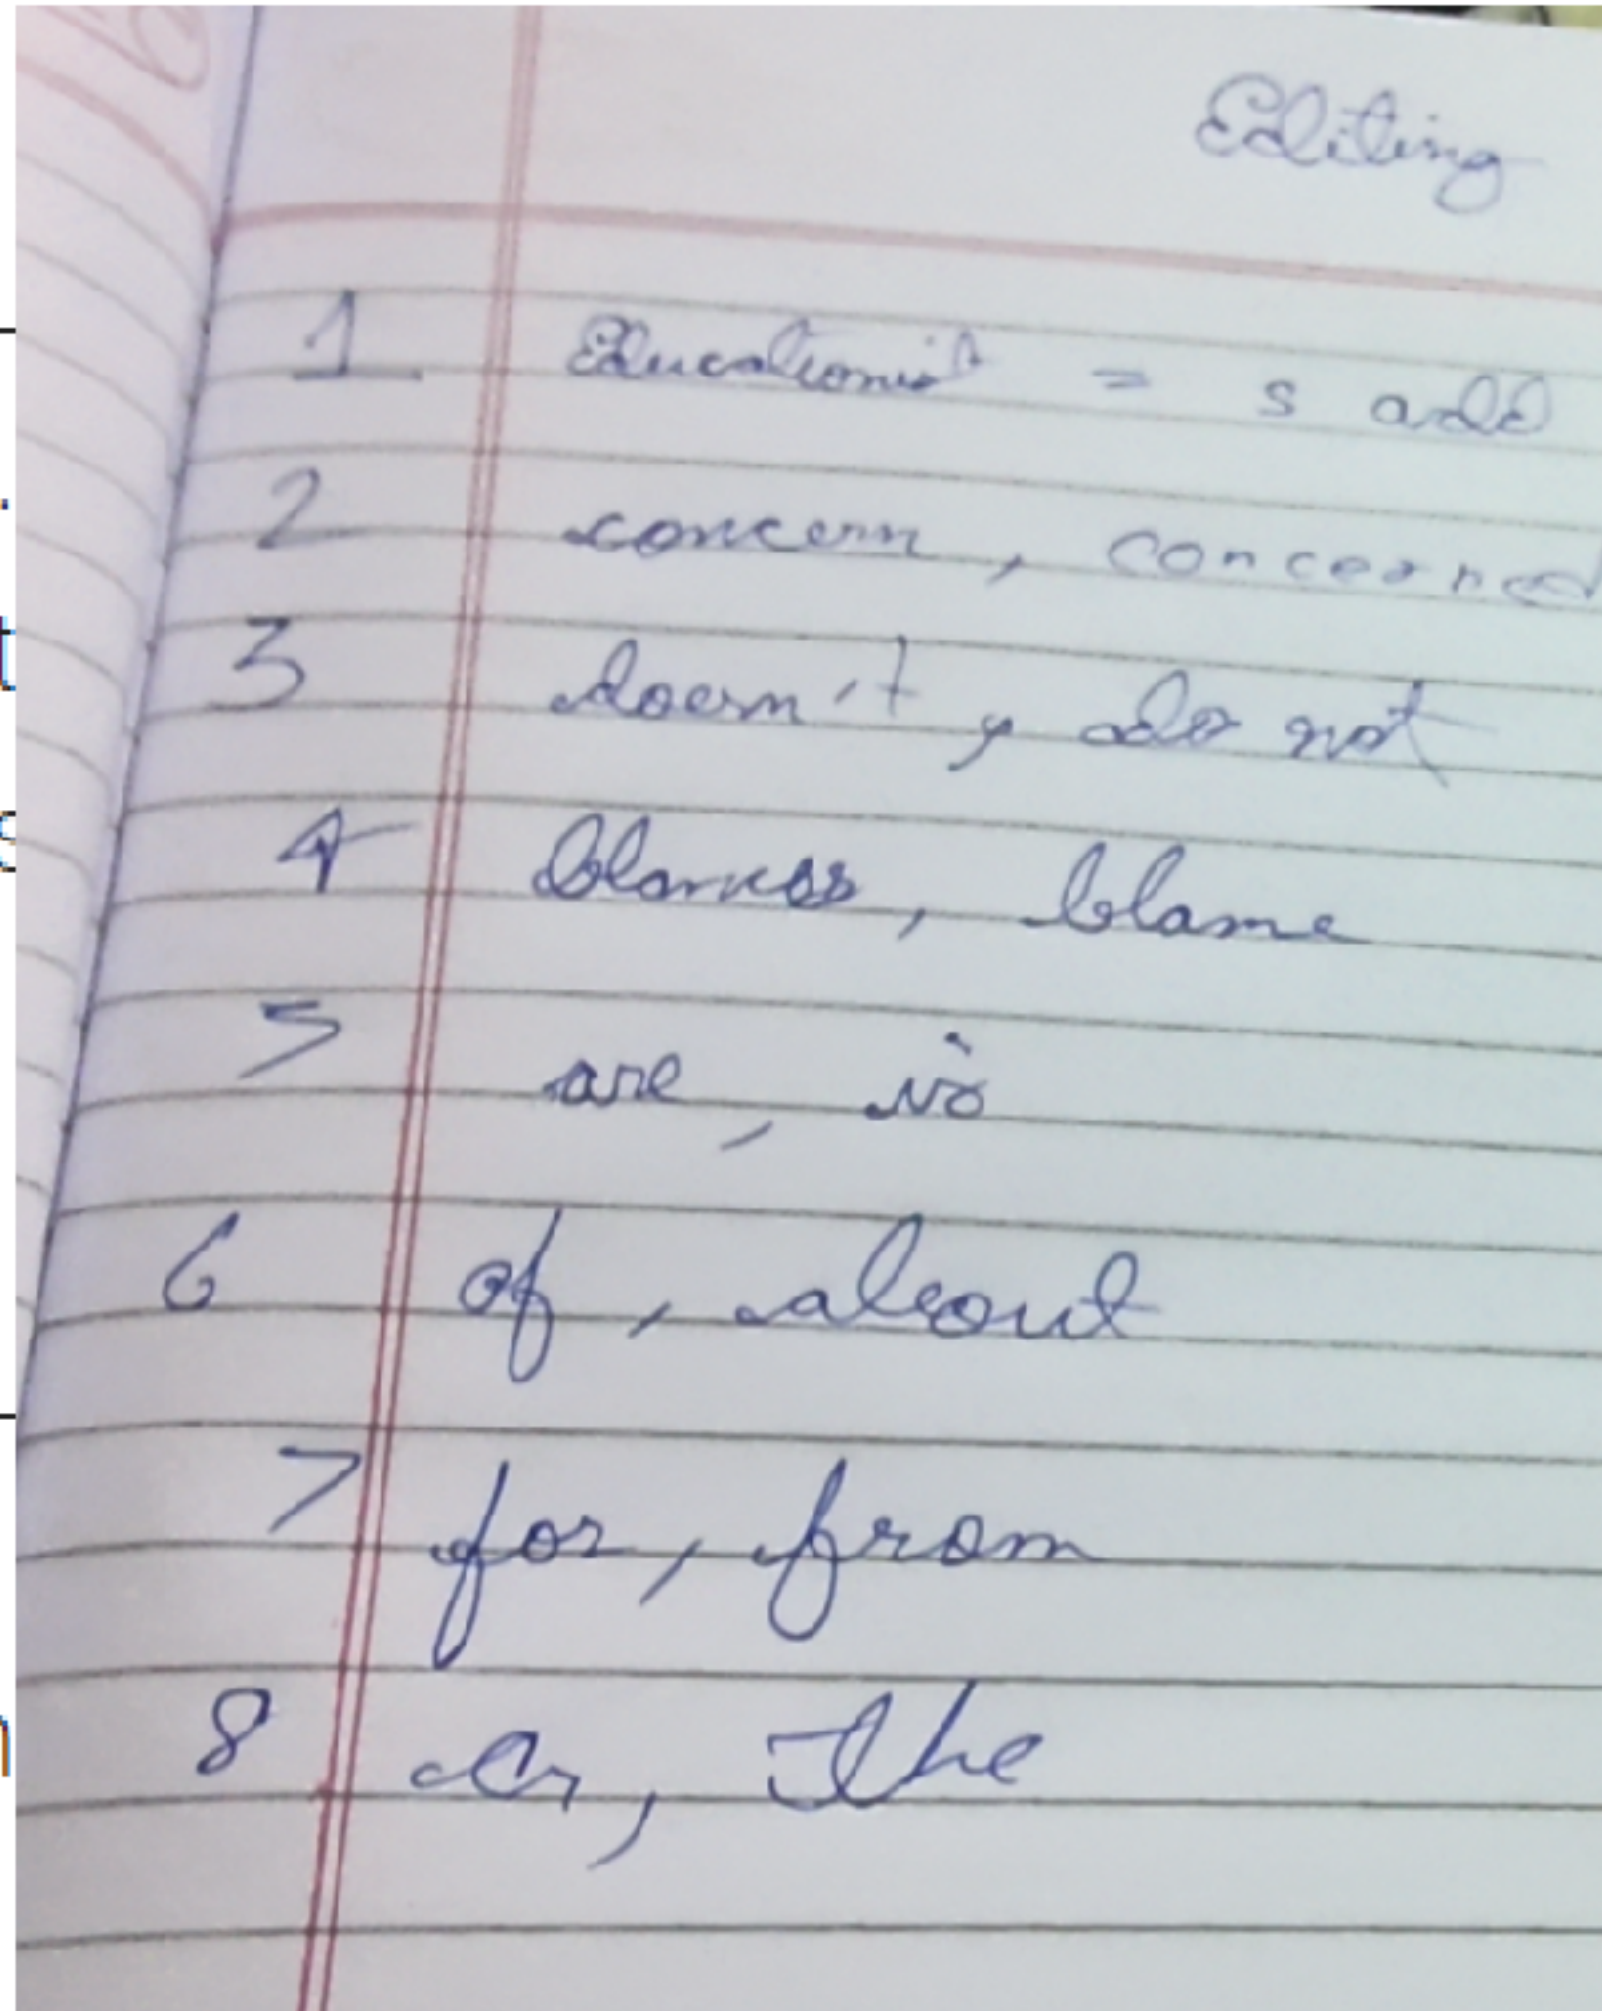 Editing
1 Educationist = s add
2 concern, concerned
3 doesn't, do not
4 blames, blame
5 are, is
6 of, about
7 for, from
8 a, the